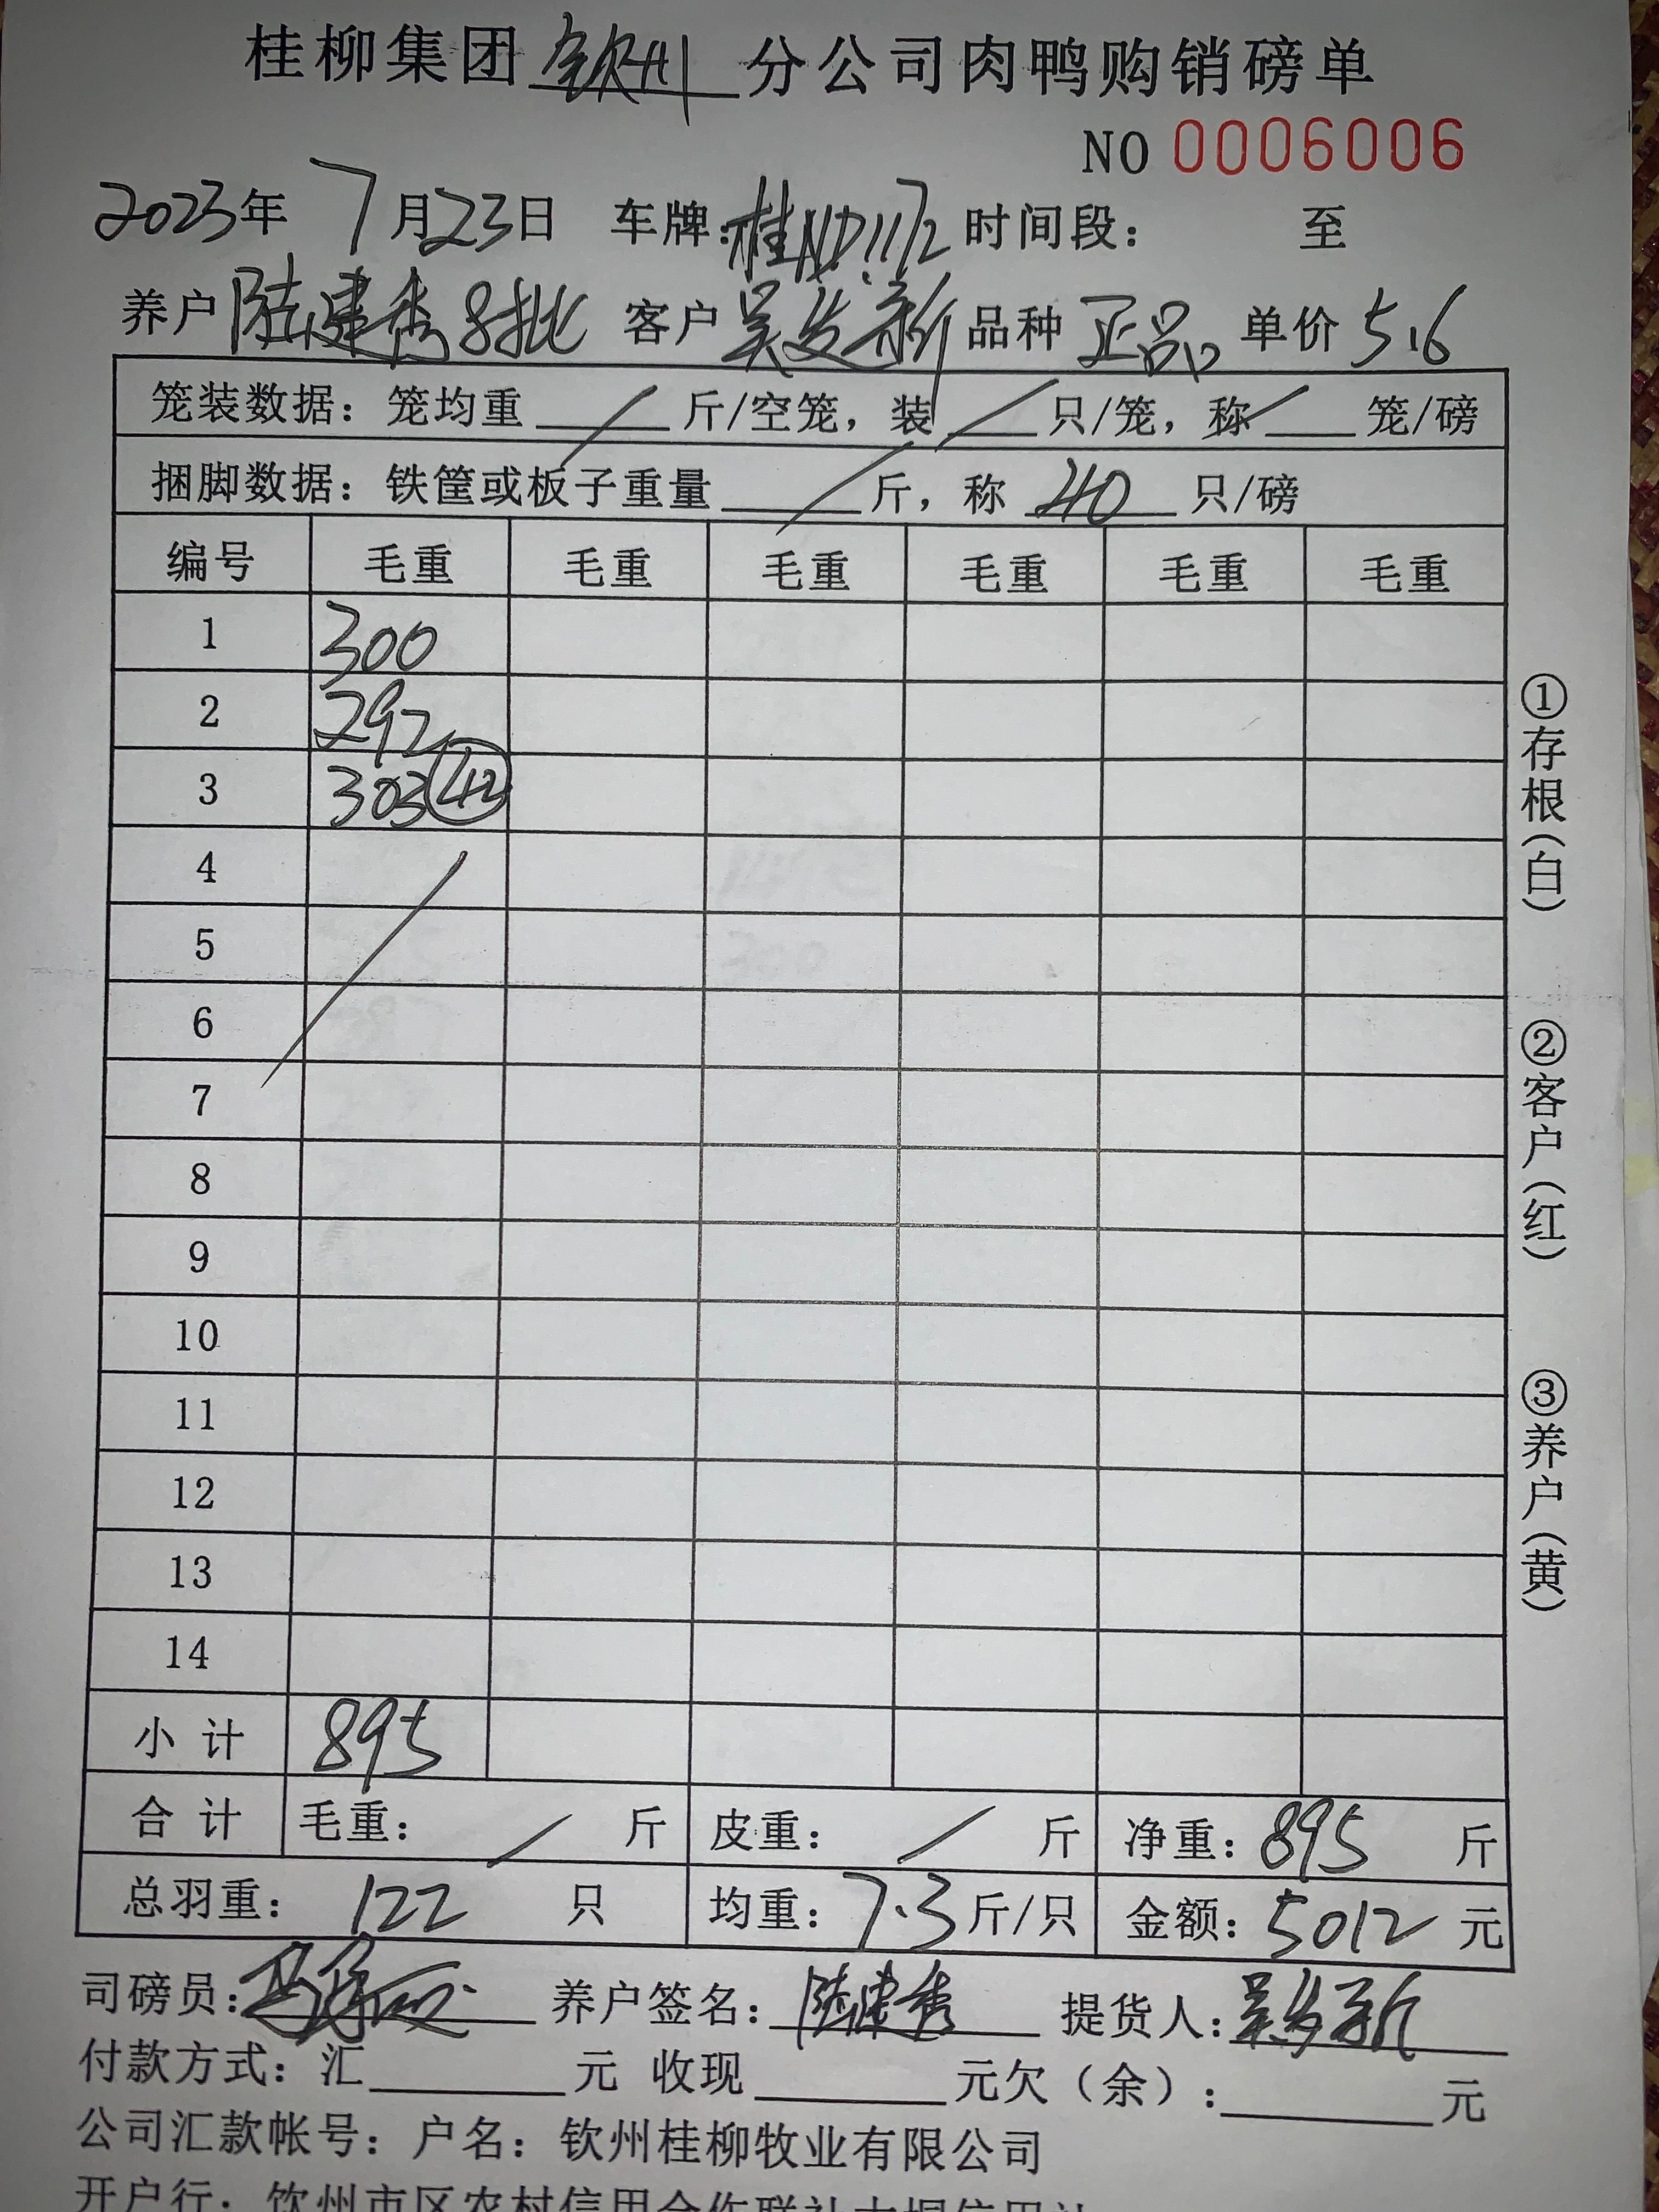 桂柳集团 钦州 分公司肉鸭购销磅单
NO 0006006
2023年 7月23日 车牌:桂ND1172 时间段: 至
养户 陆建秀8批 客户 吴发新 品种 正品 单价 5.6
笼装数据: 笼均重 / 斤/空笼, 装 / 只/笼, 称 / 笼/磅
捆脚数据: 铁筐或板子重量 / 斤, 称 40 只/磅
编号 毛重 毛重 毛重 毛重 毛重 毛重
1 300
2 292
3 303 42
4
5
6
7
8
9
10
11
12
13
14
小 计 895
合 计 毛重: / 斤 皮重: / 斤 净重: 895 斤
总羽重: 122 只 均重: 7.3 斤/只 金额: 5012 元
司磅员: 养户签名: 陆建秀 提货人: 吴发新
付款方式: 汇 元 收现 元欠(余): 元
公司汇款帐号: 户名: 钦州桂柳牧业有限公司
开户行: 钦州市区农村信用合作联社大垌信用社
①存根(白) ②客户(红) ③养户(黄)